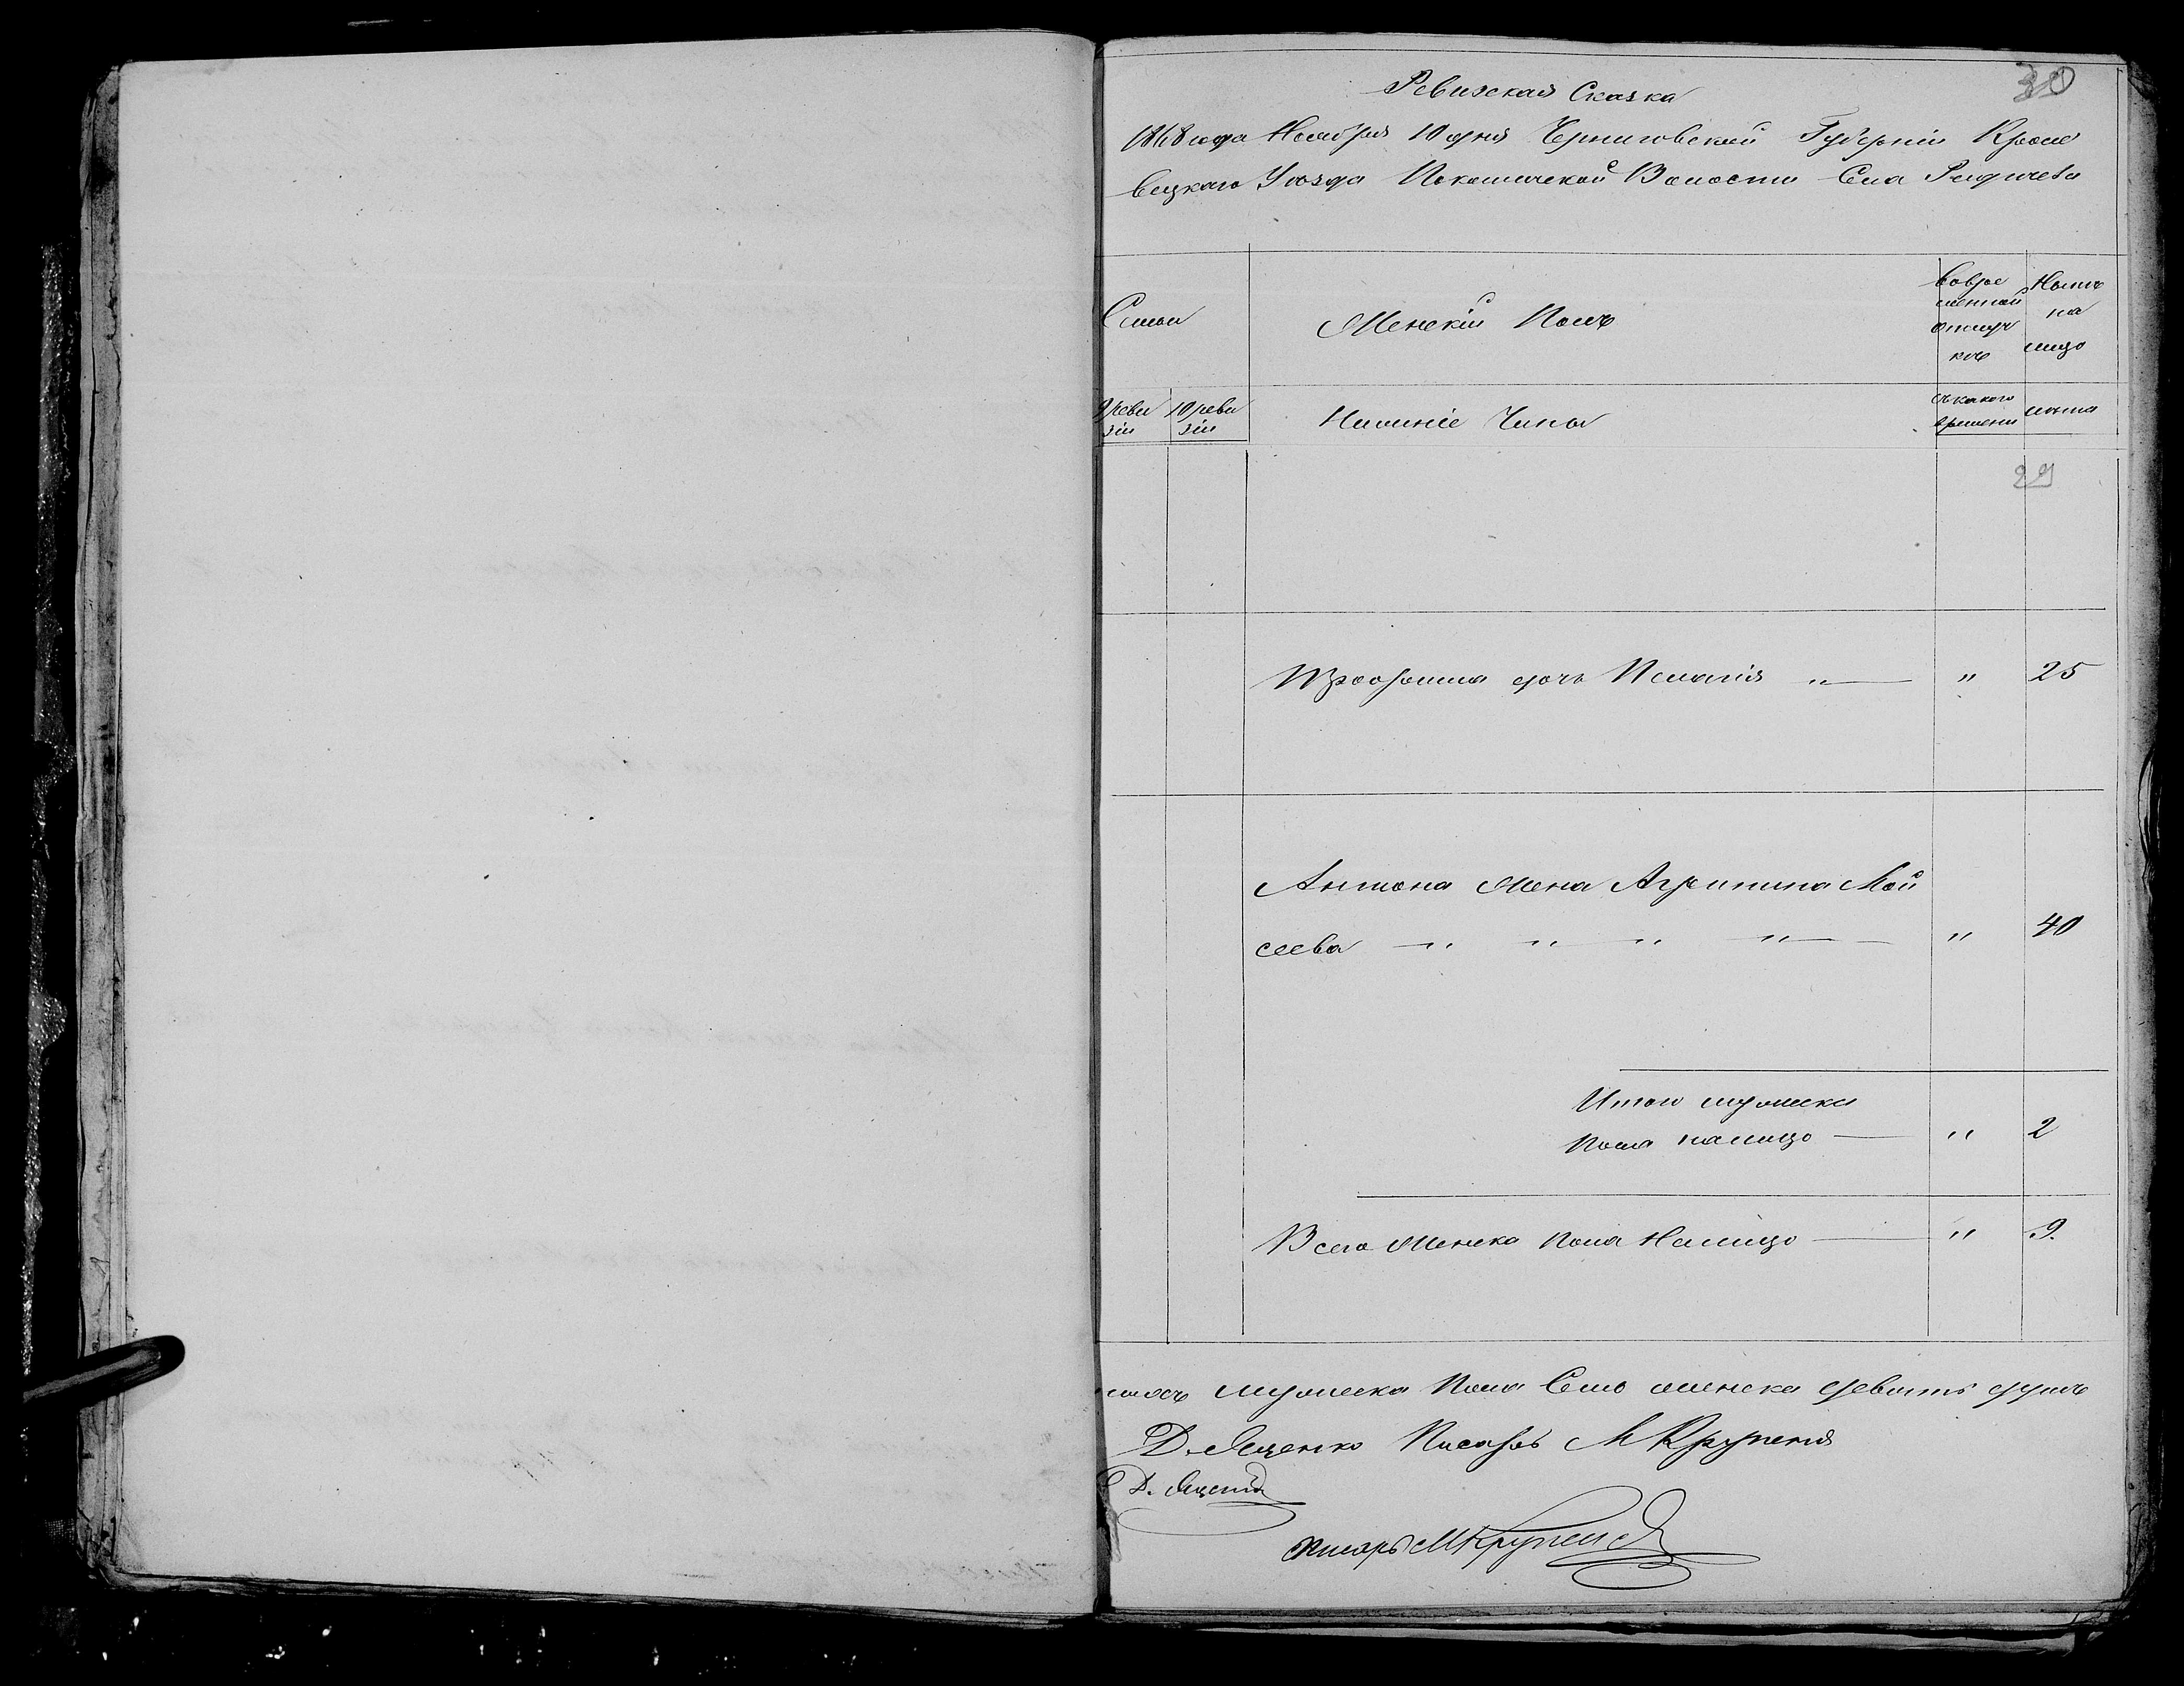 30
Ревизская Сказка
1868 года Ноября 10 дня Черниговской Губерніи Кроле
вецкаго Уѣзда Покошичской Волости Села Редичева
Семьи
Женскій Полъ
Вовре
менной
отлуч
кѣ
Нынѣ
на
лицо
9 реви
зіи
10 реви
зіи
Нижніе Чины
съ какого
времени
лѣта
29
Ѳ дочь Пелагія " — " 25
Антона Жена Агрипина Мои
сеева — " " " " — " 40
Итого мужеска
Пола налицо — " 2
Всего Женска пола Налицо — " 9.
мужеска Пола Семь женска девять душъ
Д. Яценко Писарь М Крупеня
Д. Яценко
Писарь М Крупеня